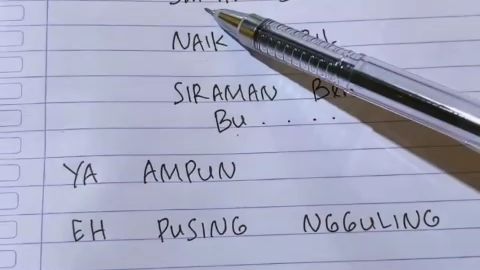 NAIK
SIRAMAN
BU . . . . .
YA AMPUN
EH PUSING NGGULING